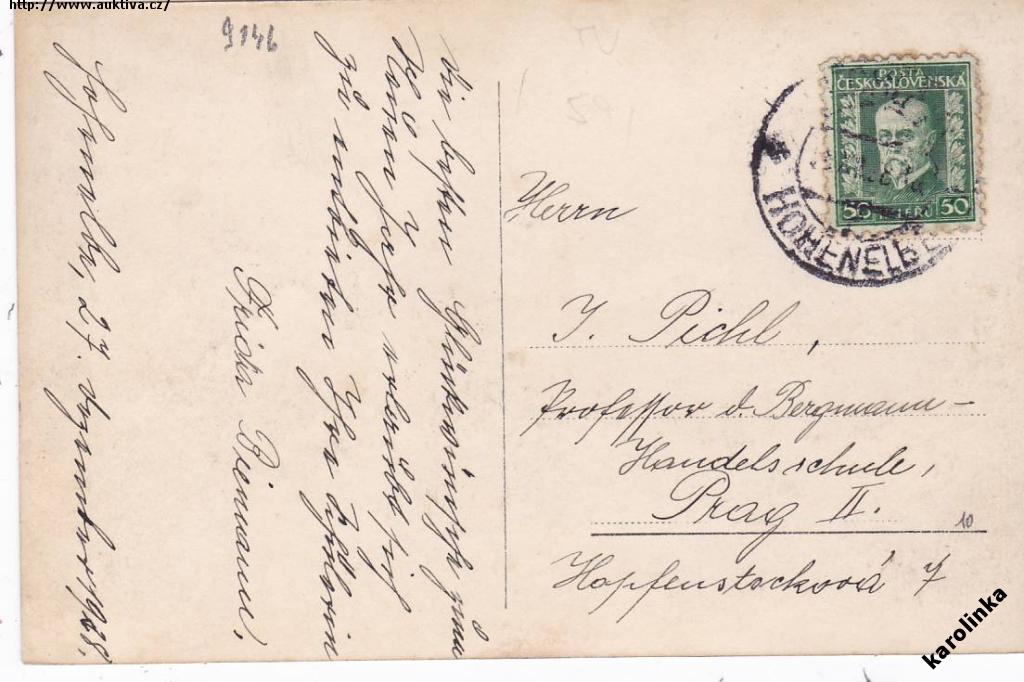 http://www.auktiva.cz/
9146
Hohenelbe, 27. Dezember 1928.
Die besten Glückwünsche zum
neuen Jahre
Ihre Schülerin
Fricka Biemann.
POSTA
ČESKOSLOVENSKÁ
50 HALERU 50
HOHENELBE
Herrn
J. Pichl,
Professor d. Bergmann-
Handelsschule,
Prag II.
10
Hopfenstocková 7
karolinka